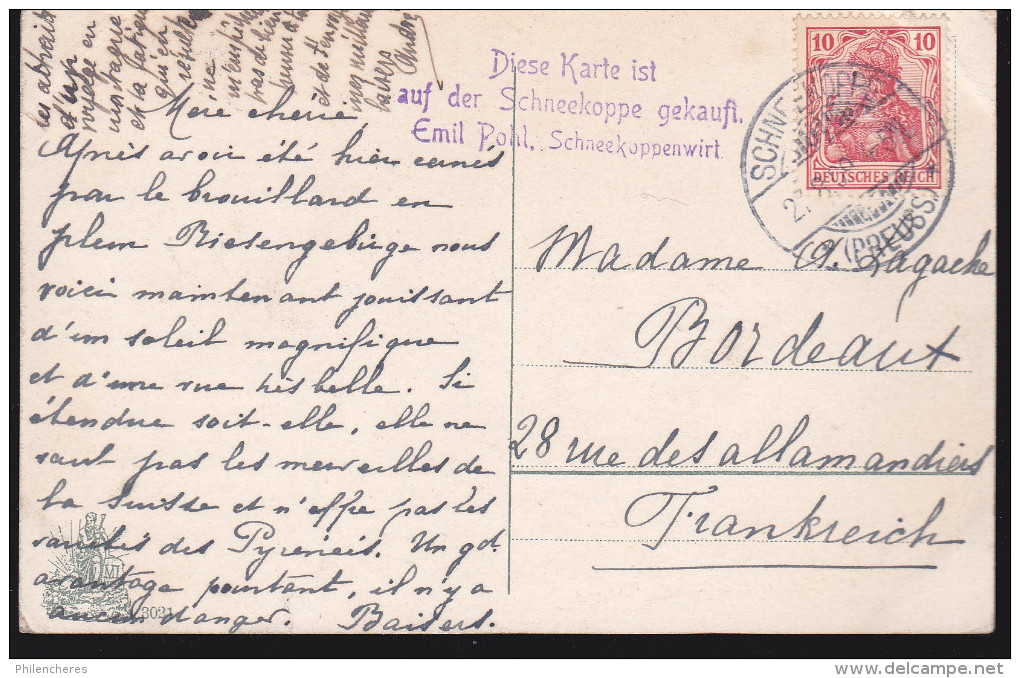 Mère chérie
Après avoir été hier cernés
par le brouillard en
plein Riesengebirge nous
voici maintenant jouissant
d'un soleil magnifique
et d'une vue très belle. Si
étendue soit-elle, elle ne
vaut pas les merveilles de
la Suisse et n'offre pas les
variétés des Pyrénées. Un gd.
avantage pourtant, il n'y a
aucun danger. Baisers.
d'un
voyage en
et la fatigue
qui en
résulte
ne
pas de bien
André
Diese Karte ist
auf der Schneekoppe gekauft.
Emil Pohl, Schneekoppenwirt
10 10
DEUTSCHES REICH
SCHNEEKOPPE
(PREUSS)
Madame A. Lagache
Bordeaux
28 rue des allamandiers
Frankreich
M
3021
Philencheres
www.delcampe.net